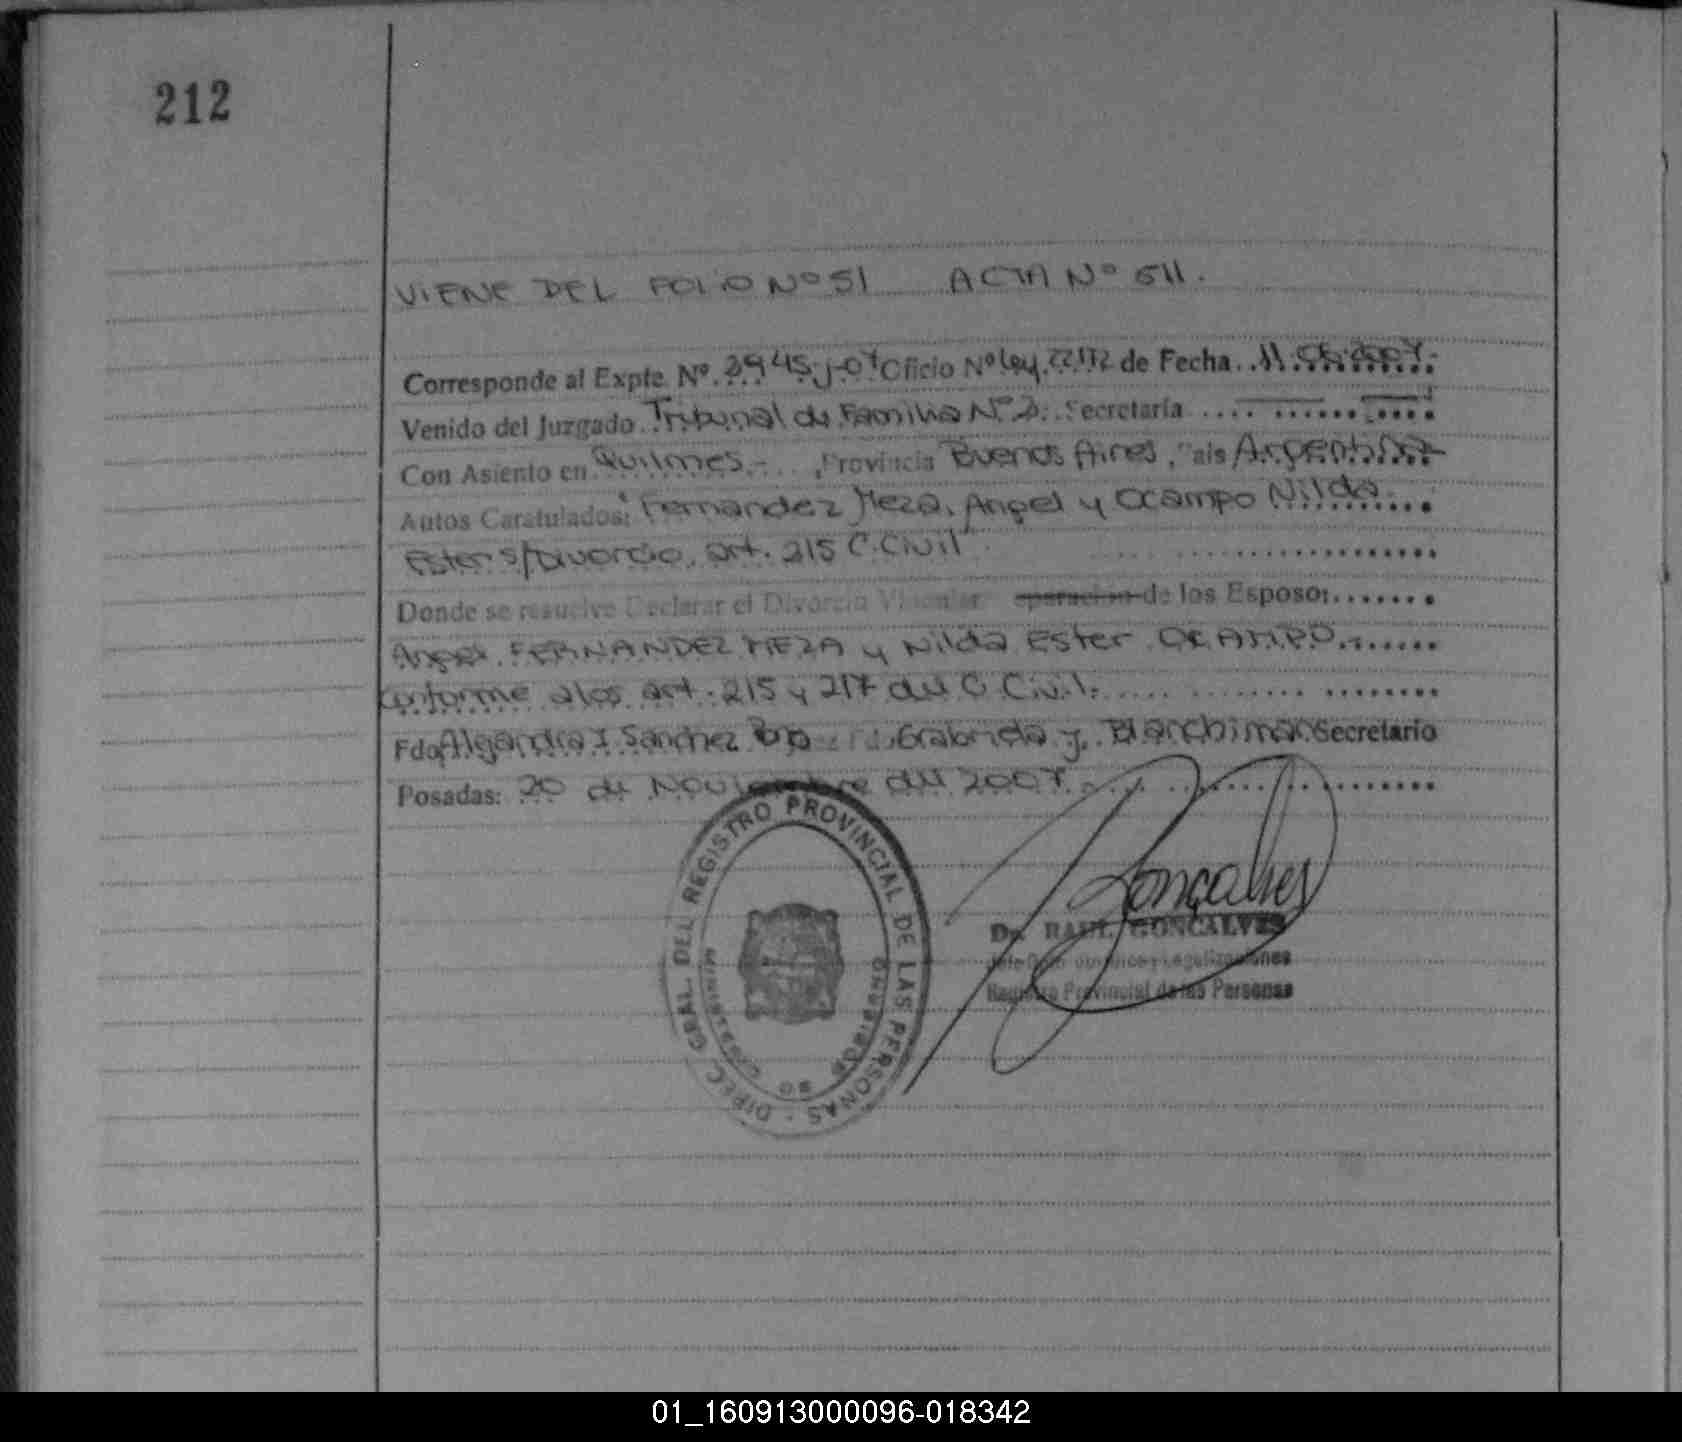 212
VIENE DEL FOLIO Nº 51 ACTA Nº 511.
Corresponde al Expte. Nº. 3945-J-07 Oficio Nº Ley 22172 de Fecha 11.06.2007.
Venido del Juzgado Tribunal de Familia Nº 3. Secretaría
Con Asiento en Quilmes.-, Provincia Buenos Aires, País Argentina
Autos Caratulados: "Fernandez Meza, Angel y Ocampo Nilda
Ester s/Divorcio, art. 215 C. Civil"
Donde se resuelve Declarar el Divorcio Vincular de los Esposos
Angel FERNANDEZ MEZA y Nilda Ester OCAMPO.-
Conforme a los art. 215 y 217 del C. Civil.
Fdo. I Sanchez Gabriela J. Secretario
Posadas: 20 de Noviembre del 2007.
DIREC. GRAL. DEL REGISTRO PROVINCIAL DE LAS PERSONAS
MINISTERIO DE GOBIERNO
Goncalves
Dr. RAUL GONCALVES
Jefe Legalizaciones
Registro Provincial de las Personas
01_160913000096-018342